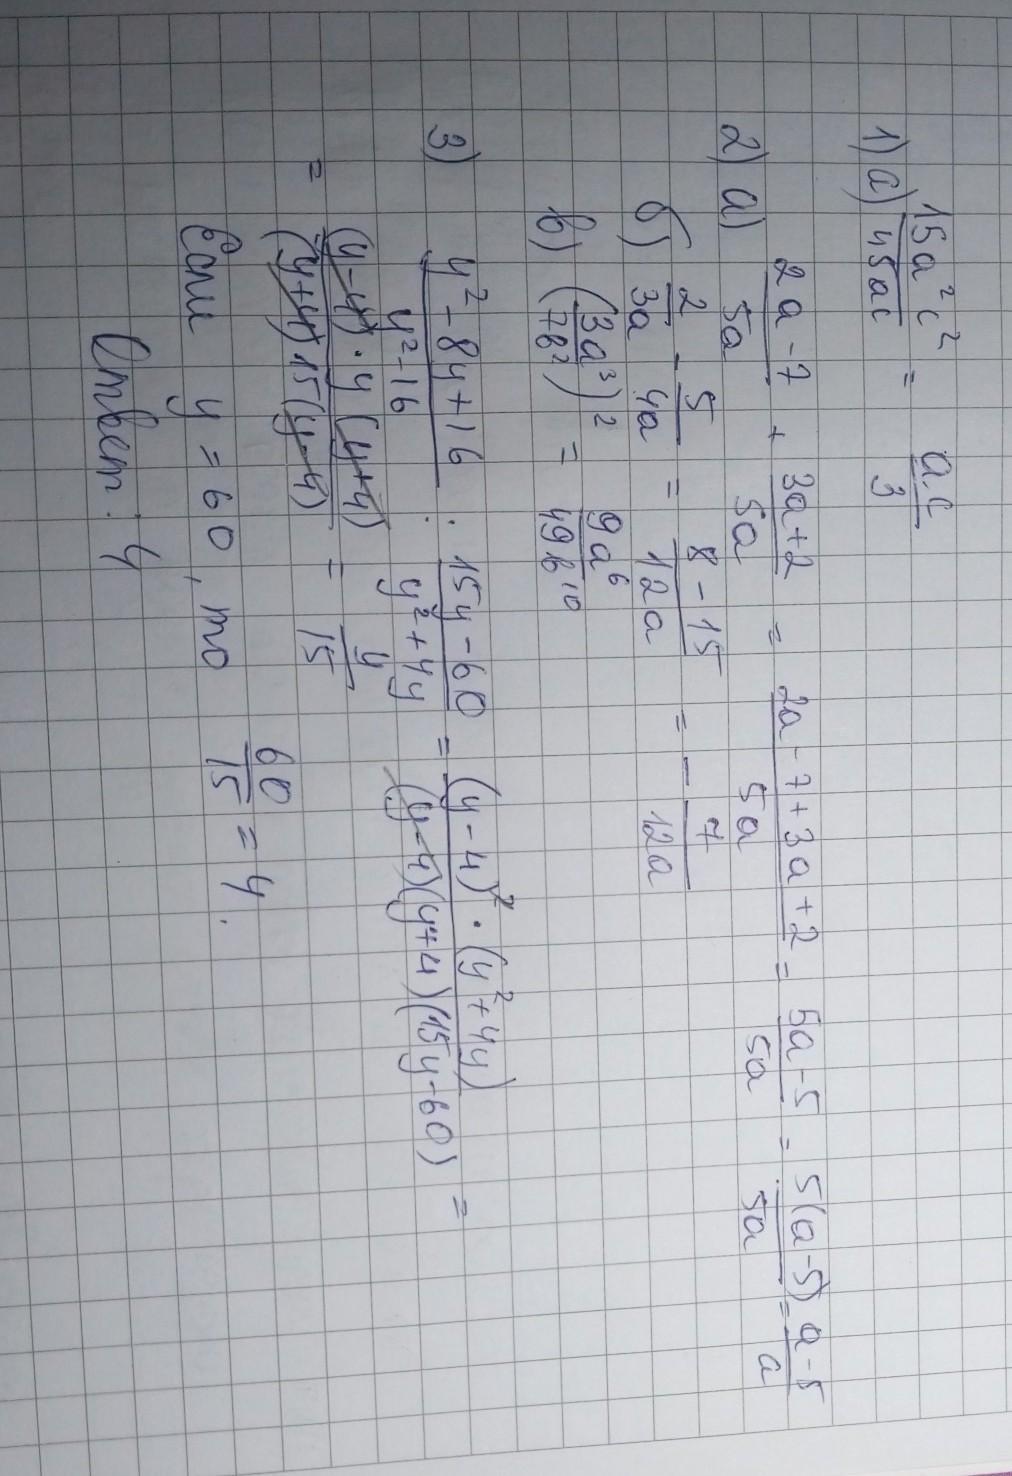 1) а) 15a²c²/45ac = a·c/3
2) а) 2a-7/5a + 3a+2/5a = 2a-7+3a+2/5a = 5a-5/5a = 5(a-5)/5a = a-5/a
б) 2/3a - 5/4a = 8-15/12a = - 7/12a
в) (3a³/7в²)² = 9a⁶/49в¹⁰
3) y²-8y+16/y²-16 : 15y-60/y²+4y = (y-4)²·(y²+4y)/(y-4)(y+4)(15y-60) =
= (y-4)·y(y+4)/(y+4)15(y-4) = y/15
Если y = 60, то 60/15 = 4.
Ответ: 4